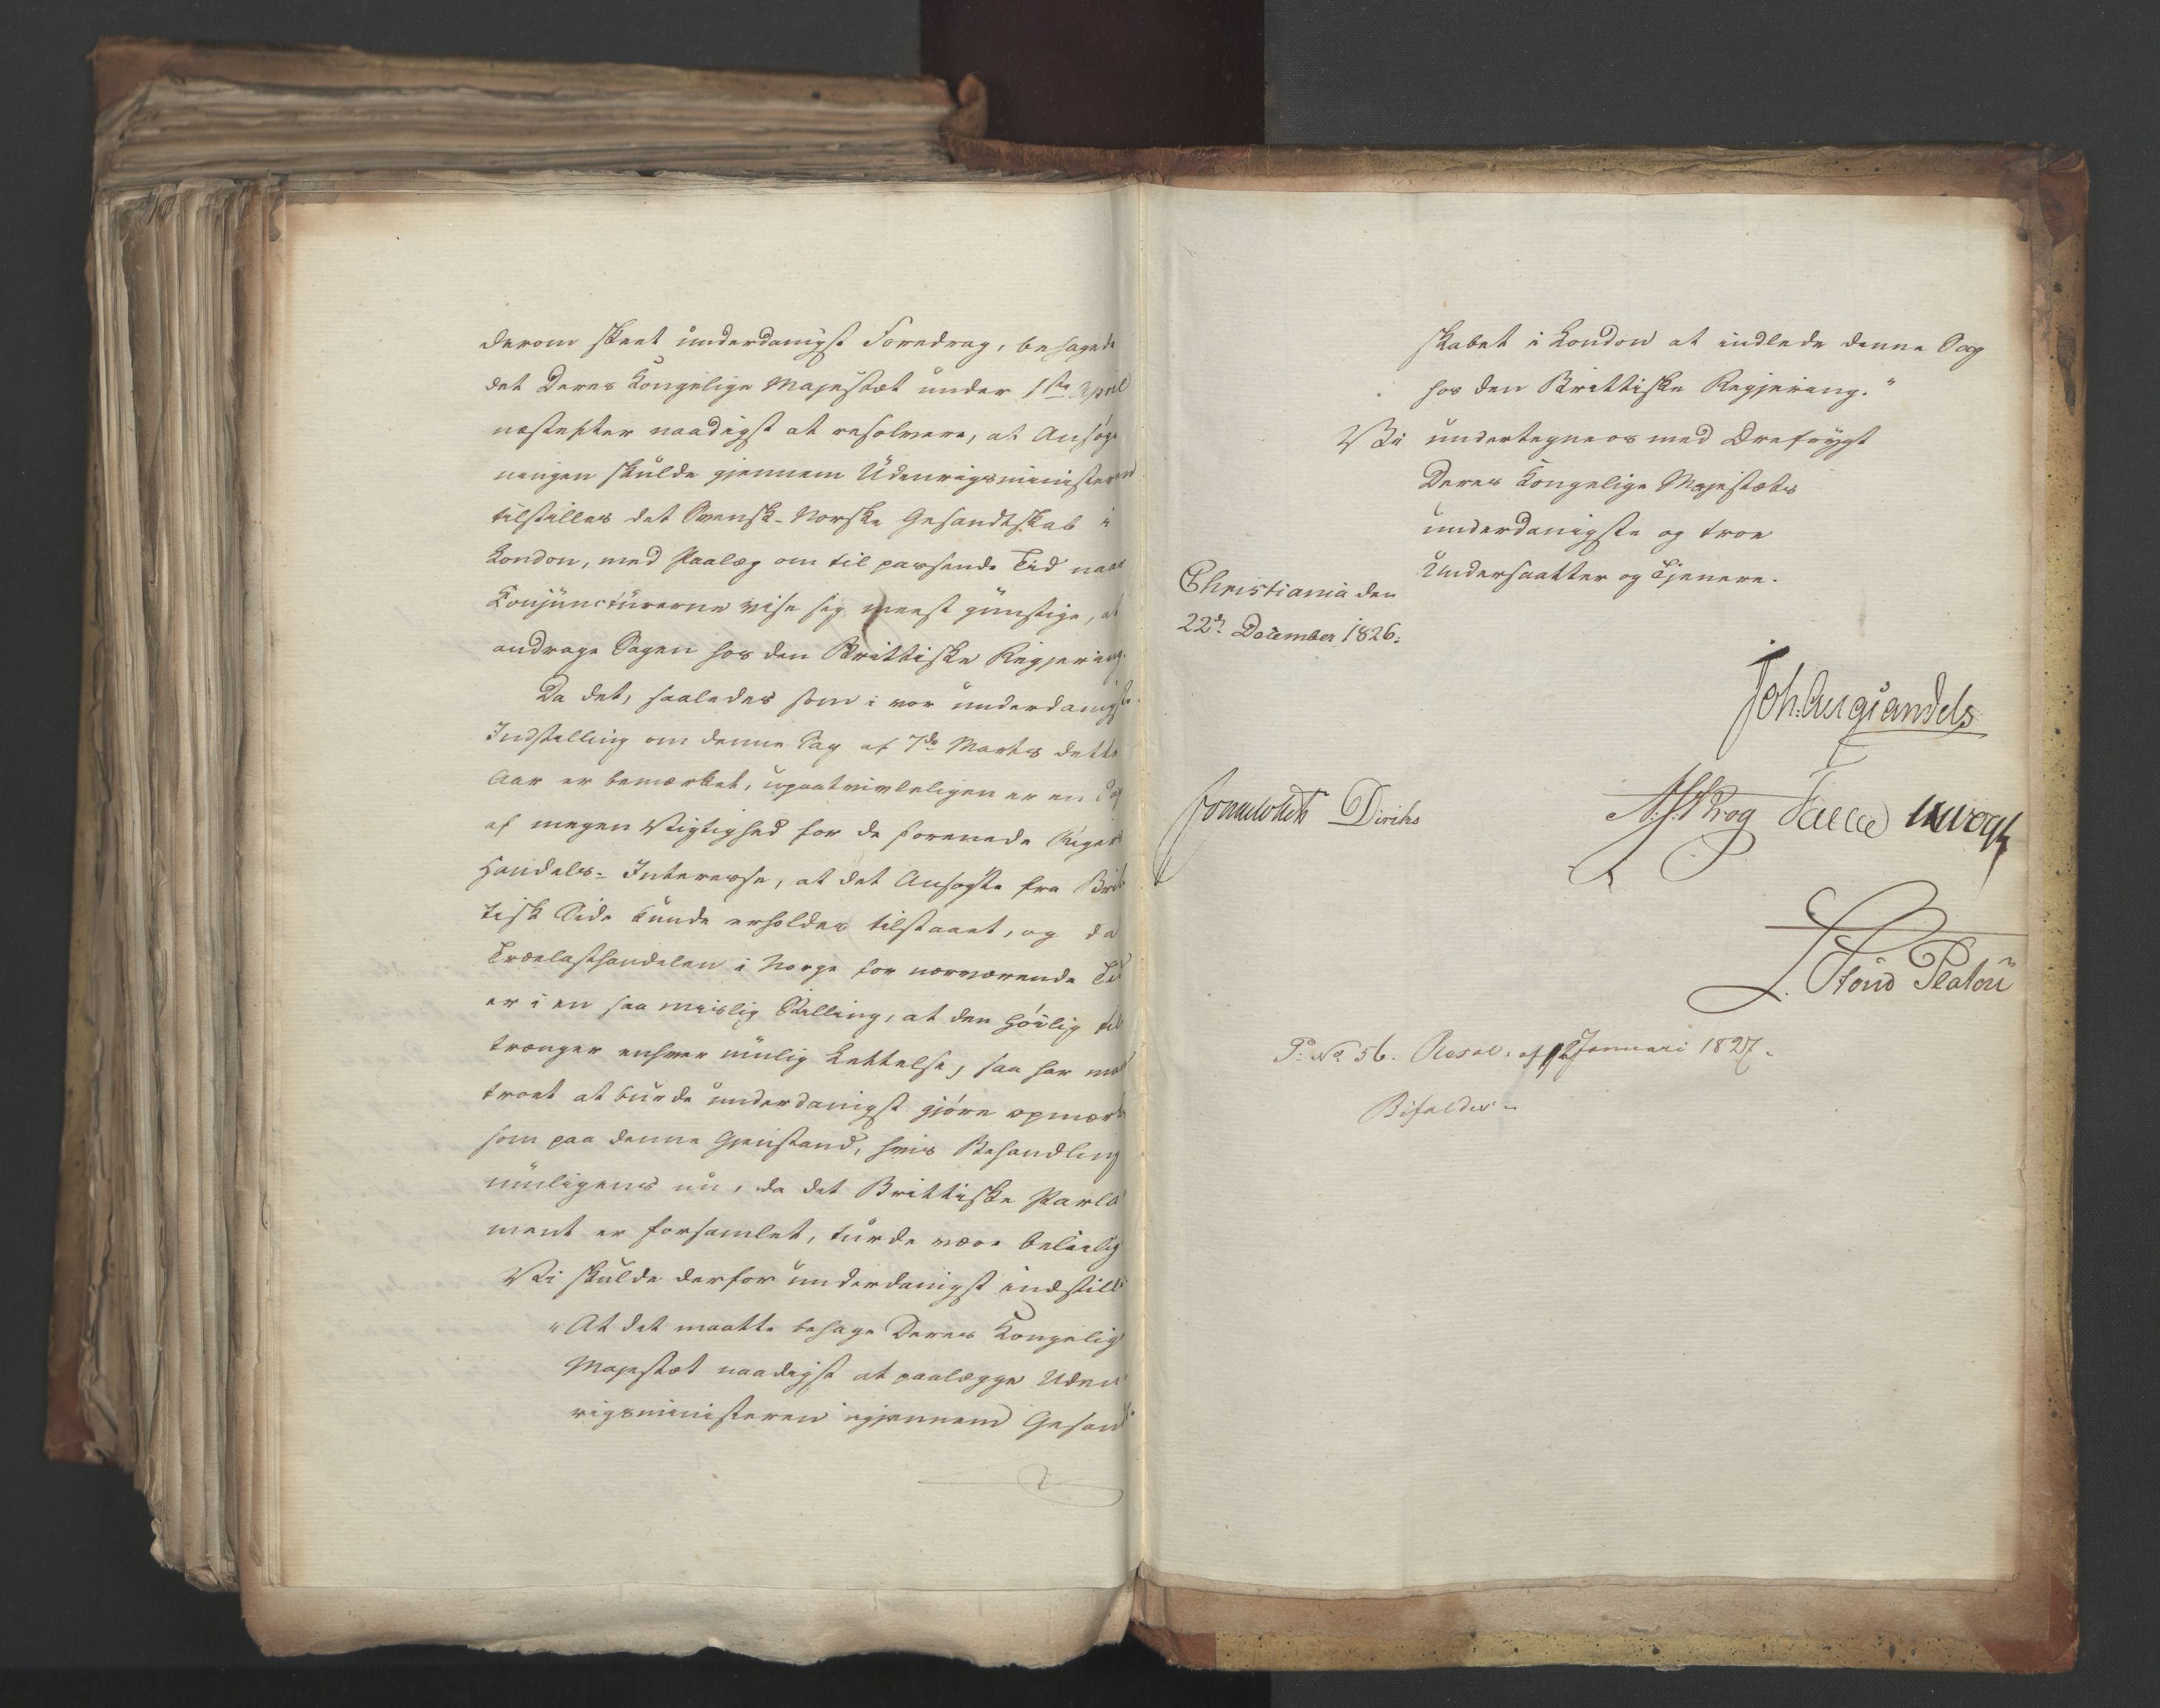 derom skeet underdanigst Foredrag, behagede
det Deres Kongelige Majestæt under 1ste April
næstefter naadigst at resolvere, at Ansøg-
ningen skulde gjennem Udenrigsministeren
tilstilles det Svensk-Norske Gesandtskab i
London, med Paalæg om til passende Tid naar
Conjuncturerne vise sig meest gunstige, at
andrage Sagen hos den Brittiske Regjering.
Da det, saaledes som i vor underdanigste
Indstilling om denne Sag af 7de Marts dette
Aar er bemærket, upaatvivleligen er en Sag
af megen Vigtighed for de forenede Rigers
Handels-Interesse, at det Ansøgte fra Brit-
tisk Side kunde erholdes tilstaaet, og da
Trælasthandelen i Norge for nærværende Tid
er i en saa mislig Stilling, at den høilig til-
trænger enhver mulig Lettelse, saa har man
troet at burde underdanigst gjøre opmærk-
som paa denne Gjenstand, hvis Behandling
muligens nu, da det Brittiske Parla-
ment er forsamlet, turde være beleilig
Vi skulde derfor underdanigst indstille
"At det maatte behage Deres Kongelige
Majestæt naadigst at paalægge Uden-
rigsministeren igjennem Gesandt-
skabet i London at indlede denne Sag
hos den Brittiske Regjering."
Vi undertegne os med Ærefrygt
Deres Kongelige Majestæts
underdanigste og troe
Undersaatter og Tjenere.
Christiania den
22de December 1826.
Joh. Aug Sandels
Sommerhielm Diriks
N. J. Krog Fasting J. H. Vogt
L. Stoud Platou
P: No 56. Resol. af 12 Januari 1827.
Bifaldes.